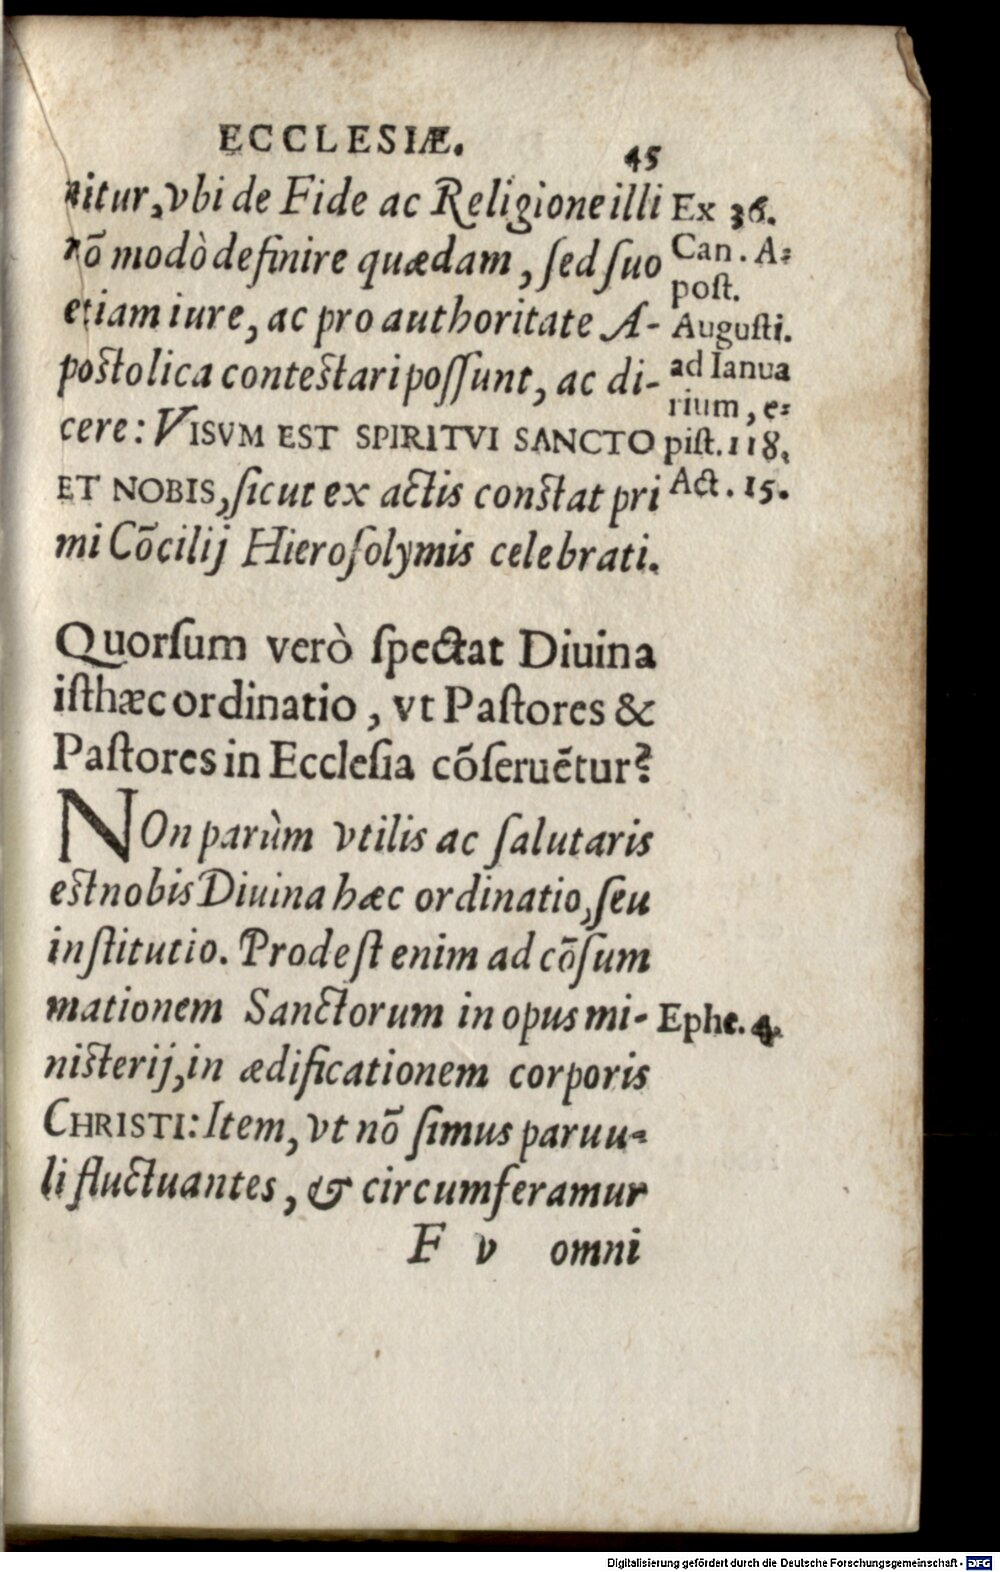 ECCLESIÆ.
45
nitur, vbi de Fide ac Religione illi
nō modò definire quædam, ſed ſuo
etiam iure, ac pro authoritate A-
poſtolica conteſtari poſſunt, ac di-
cere: VISVM EST SPIRITVI SANCTO
ET NOBIS, ſicut ex actis conſtat pri
mi Cōcilij Hieroſolymis celebrati.
Ex 36.
Can. A-
poſt.
Auguſti.
ad Ianua
rium, e-
piſt. 118.
Act. 15.
Quorſum verò ſpectat Diuina
iſthæc ordinatio, vt Paſtores &
Paſtores in Eccleſia cōſeruētur?
NOn parùm vtilis ac ſalutaris
eſt nobis Diuina hæc ordinatio, ſeu
inſtitutio. Prodeſt enim ad cōſum
mationem Sanctorum in opus mi-
niſterij, in ædificationem corporis
CHRISTI: Item, vt nō ſimus paruu-
li fluctuantes, & circumferamur
Ephe. 4.
F v omni
Digitalisierung gefördert durch die Deutsche Forschungsgemeinschaft - DFG